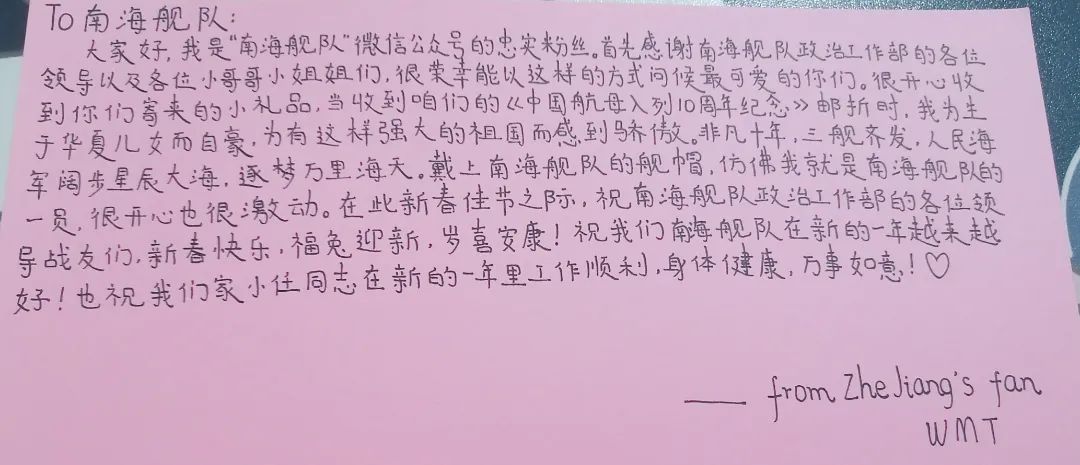 To 南海舰队:
大家好,我是“南海舰队”微信公众号的忠实粉丝。首先感谢南海舰队政治工作部的各位
领导以及各位小哥哥小姐姐们,很荣幸能以这样的方式问候最可爱的你们。很开心收
到你们寄来的小礼品,当收到咱们的《中国航母入列10周年纪念》邮折时,我为生
于华夏儿女而自豪,为有这样强大的祖国而感到骄傲。非凡十年,三舰齐发,人民海
军阔步星辰大海,逐梦万里海天。戴上南海舰队的舰帽,仿佛我就是南海舰队的
一员,很开心也很激动。在此新春佳节之际,祝南海舰队政治工作部的各位领
导战友们,新春快乐,福兔迎新,岁喜安康!祝我们南海舰队在新的一年越来越
好!也祝我们家小任同志在新的一年里工作顺利,身体健康,万事如意!♡
—— from ZheJiang's fan
WMT